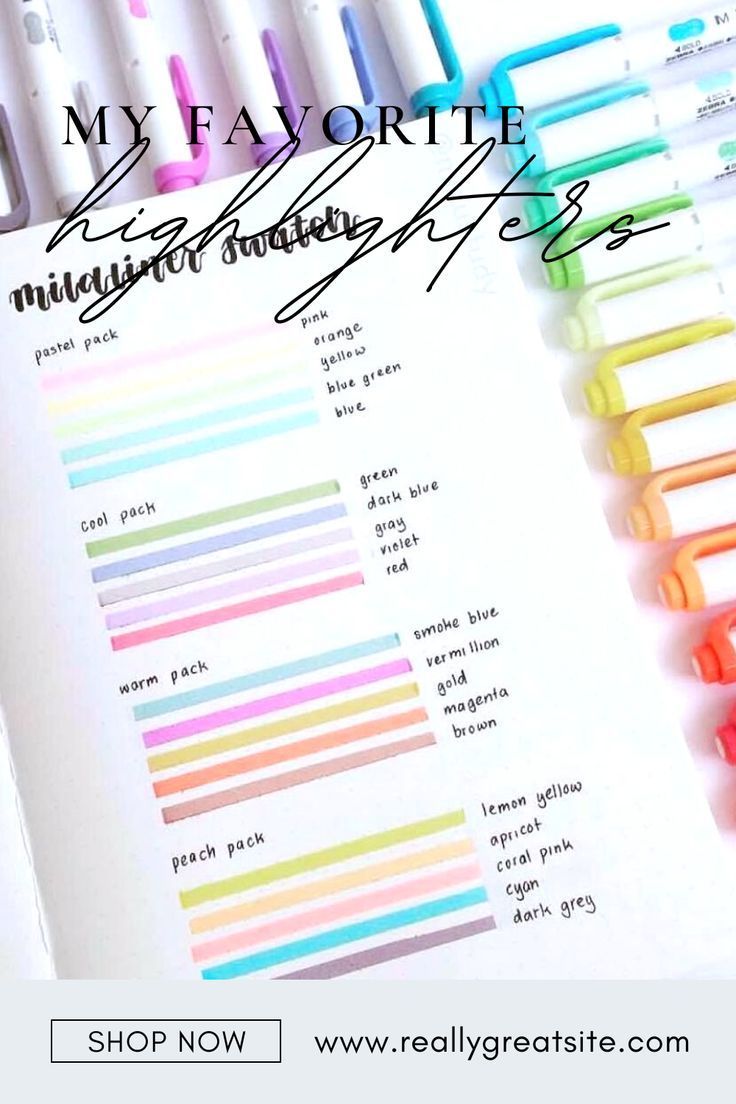 MY FAVORITE
highlighters
mildliner swatch
pastel pack
pink
orange
yellow
blue green
blue
cool pack
green
dark blue
gray
violet
red
warm pack
smoke blue
vermillion
gold
magenta
brown
peach pack
lemon yellow
apricot
coral pink
cyan
dark grey
BOLD
ZEBRA
BOLD
ZEBRA
SHOP NOW
www.reallygreatsite.com